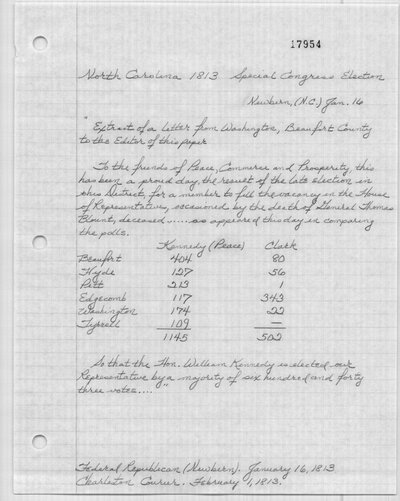 17954
North Carolina 1813 Special Congress Election
Newbern, (N.C.) Jan. 16
"Extract of a letter from Washington, Beaufort County
to the Editor of this paper
To the friends of Peace, Commerce and Prosperity, this
has been a proud day, the result of the late election in
this District, for a member to fill the vacancy in the House
of Representatives, occasioned by the death of General Thomas
Blount, deceased ..... as appeared this day in comparing
the polls.
Kennedy (Peace) Clark
Beaufort 404 80
Hyde 127 56
Pitt 213 1
Edgecomb 117 343
Washington 174 22
Tyrrell 109 —
1145 502
So that the Hon. William Kennedy is elected our
Representative by a majority of six hundred and forty
three votes...."
Federal Republican (Newbern). January 16, 1813
Charleston Courier. February 1, 1813.